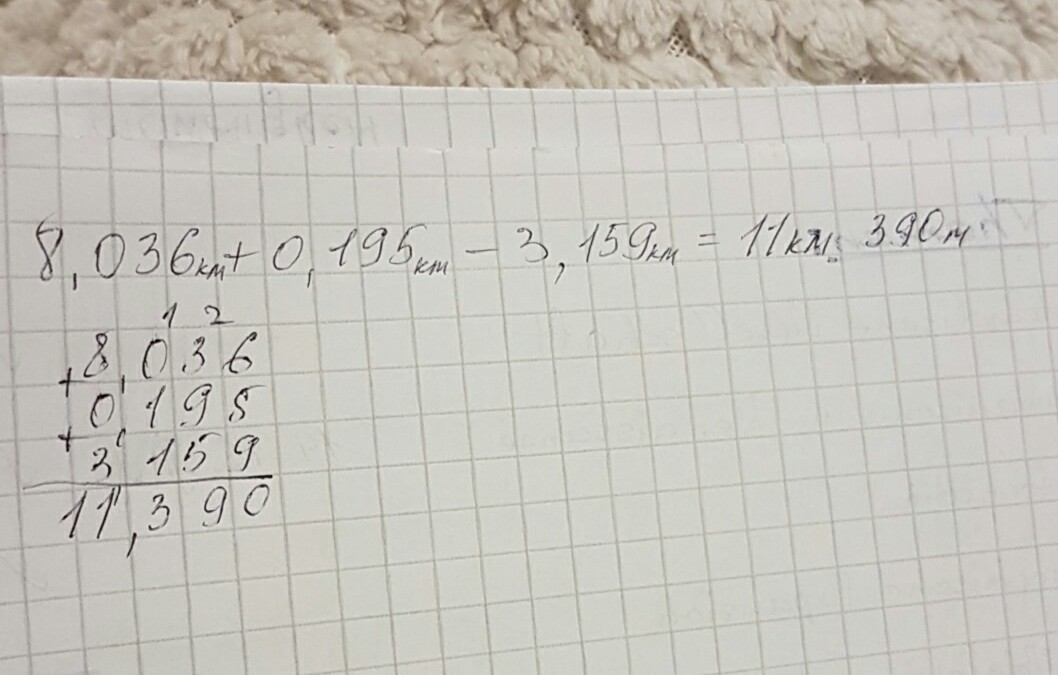 8,036км + 0,195км - 3,159км = 11км 390м
1 2
+ 8,036
+ 0,195
3,159
11,390